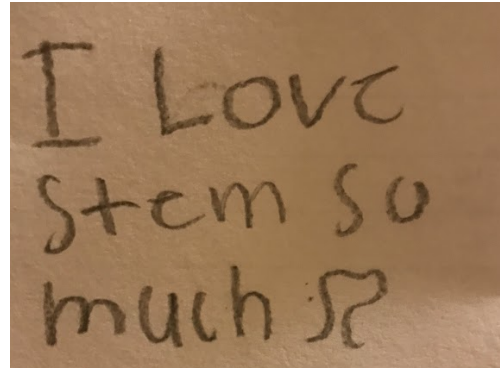 I Love
stem so
much